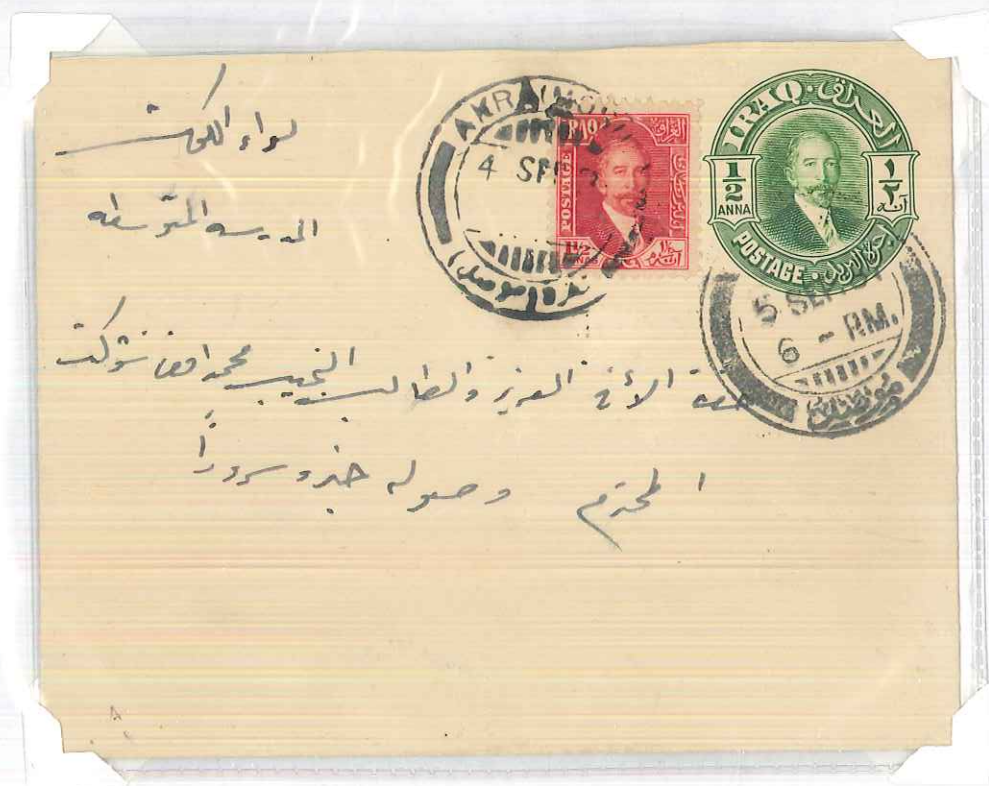 لواء الكوت
المدرسة المتوسطة
الأخ العزيز والطالب النجيب محمد افندي شوكت
المحترم وصوله خير وسرورا
AKRA (MOSUL)
4 SEP
IRAQ العراق
POSTAGE
1½ ANNAS
IRAQ العراق
½ ANNA ١/٢ آنه
POSTAGE
5 SEP
6 - P.M.